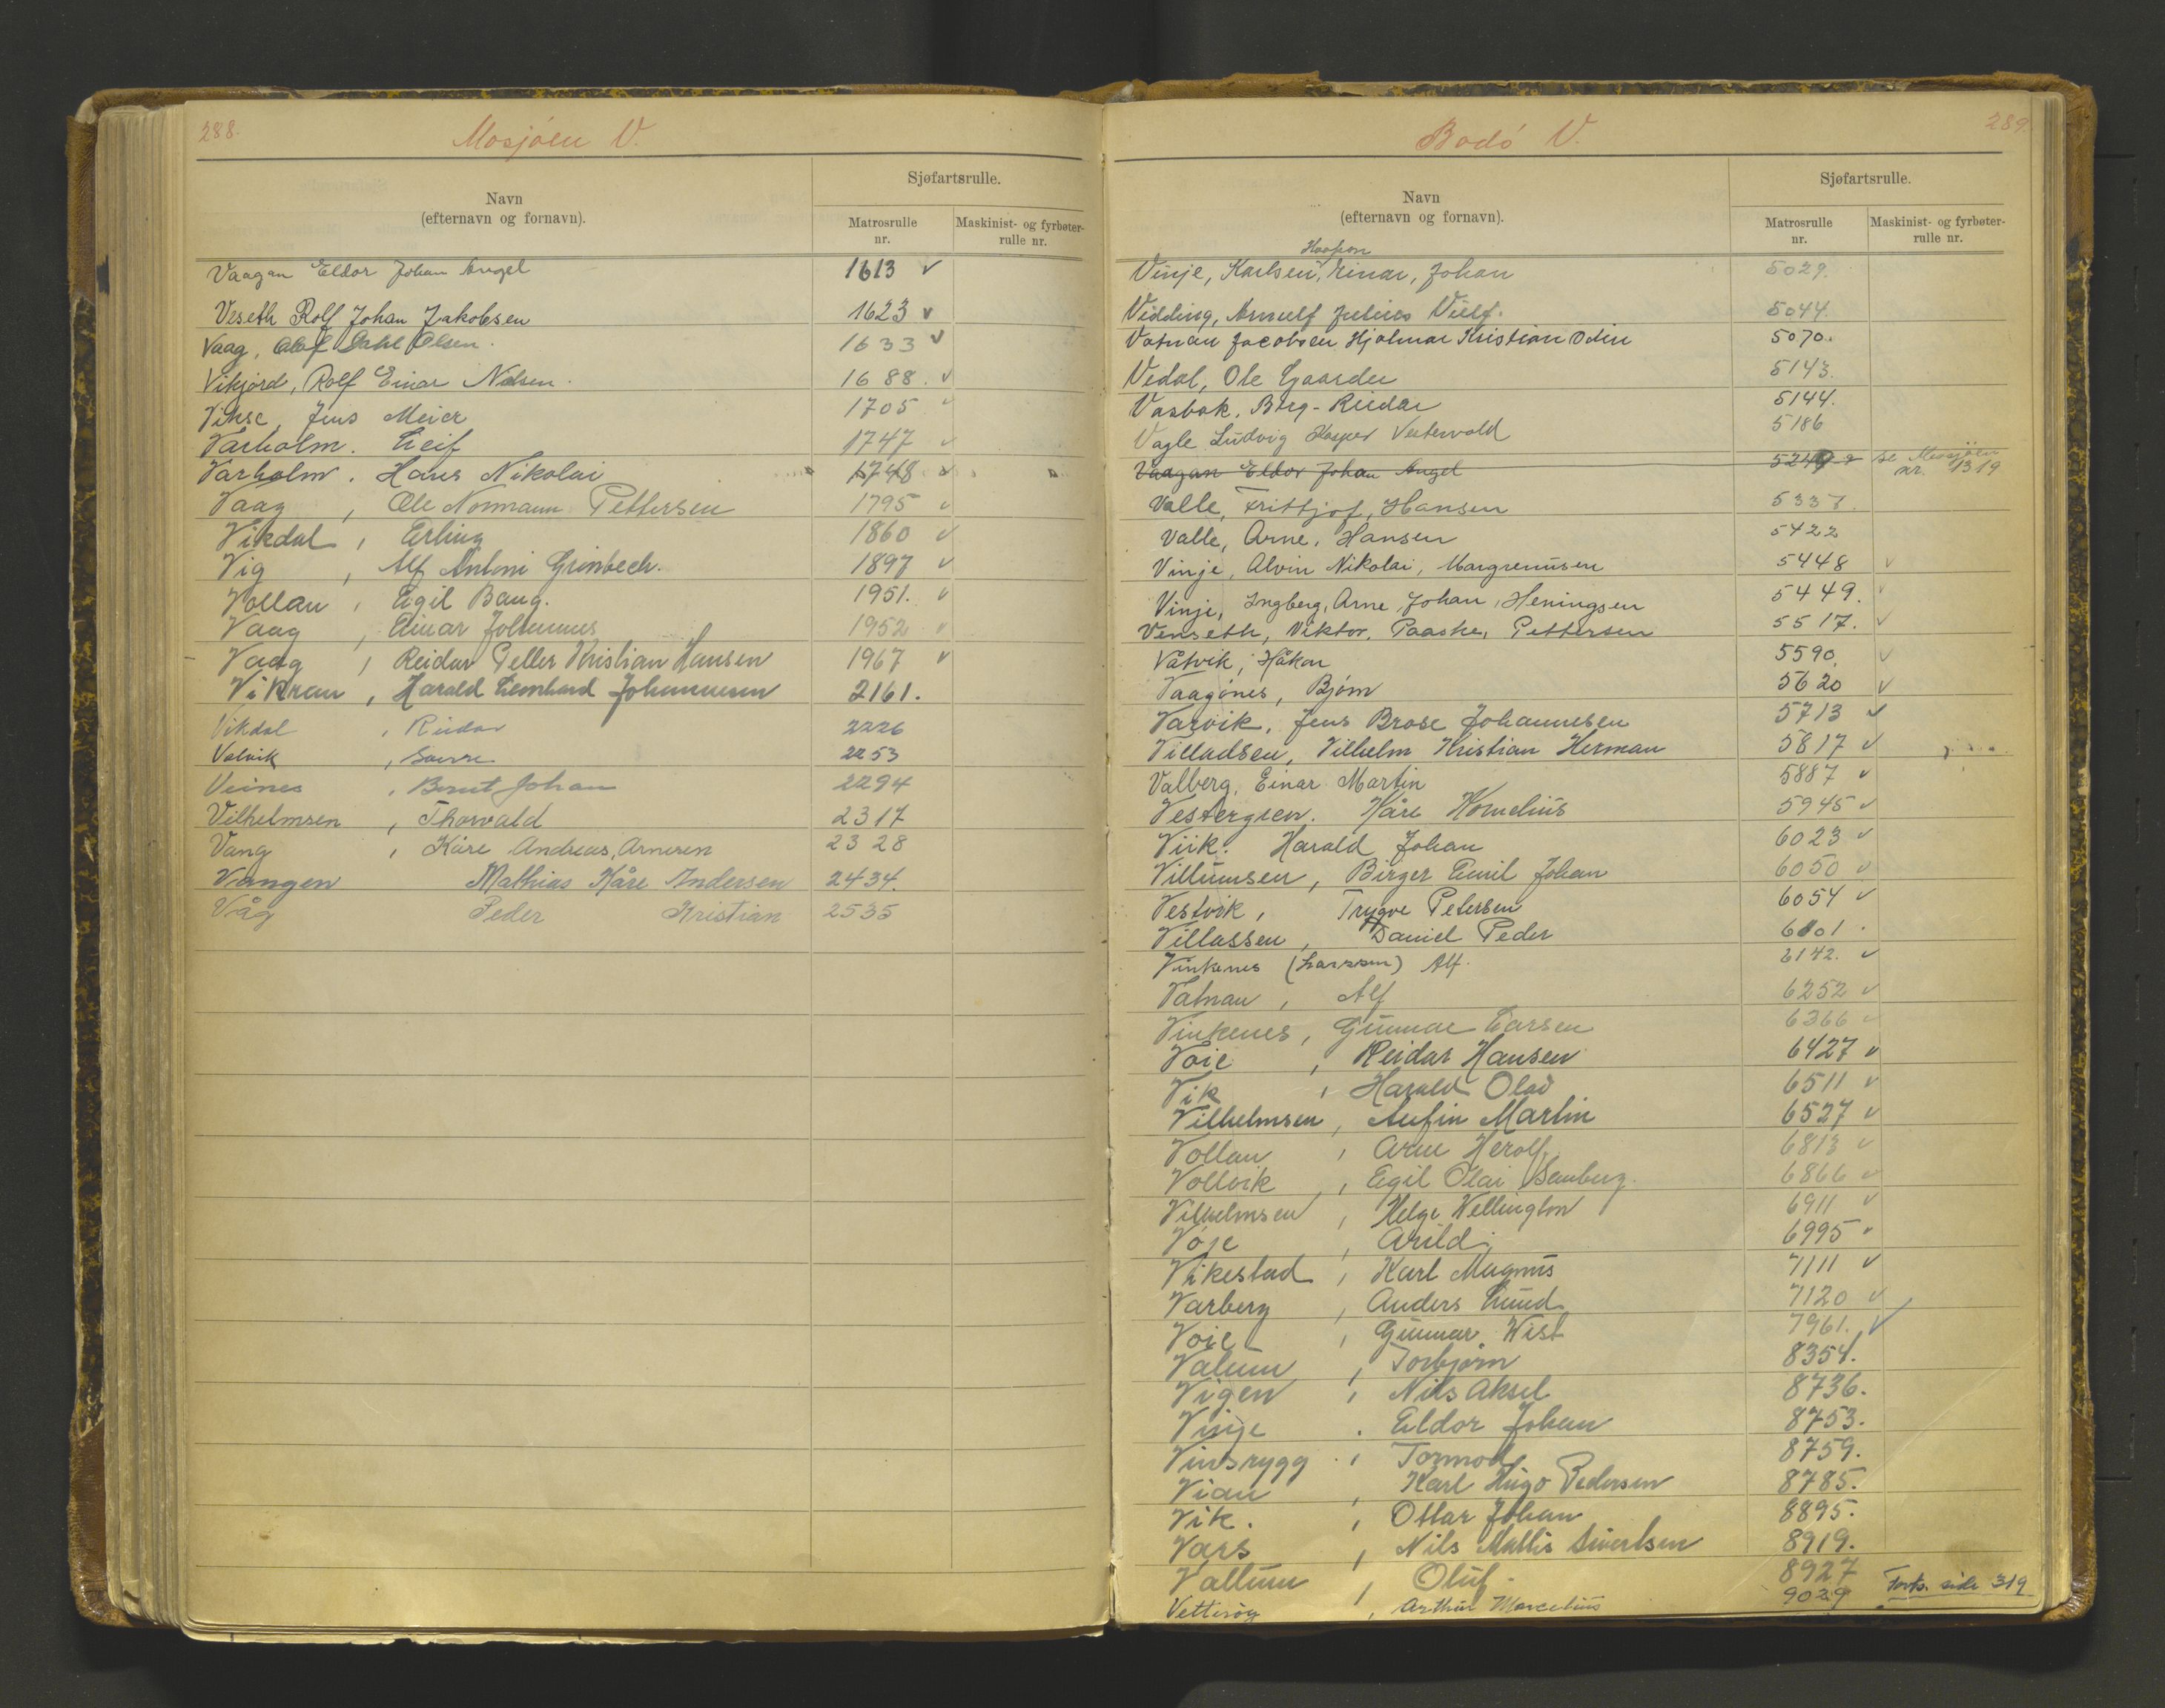 288.
Mosjøen V.
Navn
(efternavn og fornavn).
Sjøfartsrulle.
Matrosrulle
nr.
Maskinist- og fyrbøter-
rulle nr.
Vaagan Eldor Johan Angel 1613 v
Veseth Rolf Johan Jakobsen 1623 v
Vaag, Olaf Dahl Olsen. 1633 v
Vikjord, Rolf Einar Nilsen. 1688. v
Jens Meier 1705 v
Varholm. Leif 1747 v
Varholm. Hans Nikolai 1748 v
Vaag, Ole Normann Pettersen 1795 v
Vikdal, Erling 1860 v
Vig, Alf Antoni Grønbech. 1897 v
Vollan, Egil Baug. 1951. v
Vaag, Einar Johannes 1952 v
Vaag, Reidar Peller Kristian Hansen 1967 v
Vikran, Harald Leonhard Johannesen 2161.
Vikdal, Reidar 2226
Valvik, Sverre 2253
Veines, Bernt Johan 2294
Vilhelmsen, Thorvald 2317
Vang, Kåre Andreas, Arnesen 2328
Vangen Mathias Kåre Andersen 2434.
Våg Peder Kristian 2535
289.
Bodø V.
Navn
(efternavn og fornavn).
Sjøfartsrulle.
Matrosrulle
nr.
Maskinist- og fyrbøter-
rulle nr.
Haakon
Vinje, Karlsen, Einar, Johan 5029.
Vidding, Arnulf Julius 5044.
Vatnan Jacobsen Hjalmar Kristian Odin 5070.
Vedal, Ole Gaarder 5143.
Vasbak, Birg-Reidar 5144.
Vagle Ludvig Kasper Vestervold 5186
Vaagan Eldor Johan Angel 5249 se Mosjøen
nr. 1319
Valle, Frittjof, Hansen 5337.
Valle, Arne, Hansen 5422
Vinje, Alvin Nikolai, Margrenusen 5448 v
Vinje, Ingberg, Arne, Johan, Heningsen 5449. v
Venseth, Viktor, Paaske, Pettersen 5517. v
Våtvik, Håkon 5590. v
Vaagønes, Bjørn 5620 v
Varvik, Jens Brose Johannesen 5713 v
Villadsen, Vilhelm Kristian Herman 5817 v
Valberg, Einar Martin 5887 v
Vestergren. Kåre Kornelius 5945 v
Viik. Harald Johan 6023 v
Villumsen, Birger Emil Johan 6050 v
Vestvik, Trygve Petersen 6054 v
Villassen, Daniel Peder 6101.
Vinkenes (Larssen) Alf. 6142. v
Vatnan, Alf 6252 v
Vinkenes, Gunnar Larsen 6366 v
Voie, Reidar Hansen 6427 v
Vik, Harald Olav 6511 v
Vilhelmsen, Anfin Martin 6527 v
Vollan, Arne Herolf. 6813 v
Vollvik, Egil Olai 6866 v
Vilhelmsen, Helge Wellington 6911 v
Voie, Arild. 6995 v
Vikestad, Karl Magnus 7111 v
Varberg, Anders Lund 7120 v
Voie, Gunnar Wist 7961. v
Valum, Torbjørn 8354.
Vigen, Nils Aksel 8736.
Vinje. Eldor Johan 8753.
Vinsrygg, Tormod 8759.
Vian, Karl Hugo Pedersen 8785.
Vik., Ottar Johan 8895.
Vars, Nils Mathis Sivertsen 8919.
Vallum, Oluf 8927
Vetterøy, Arthur Marcelius 9039 Forts. side 319